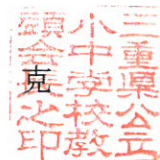 三重県公立
小中学校教
頭会長之印
克